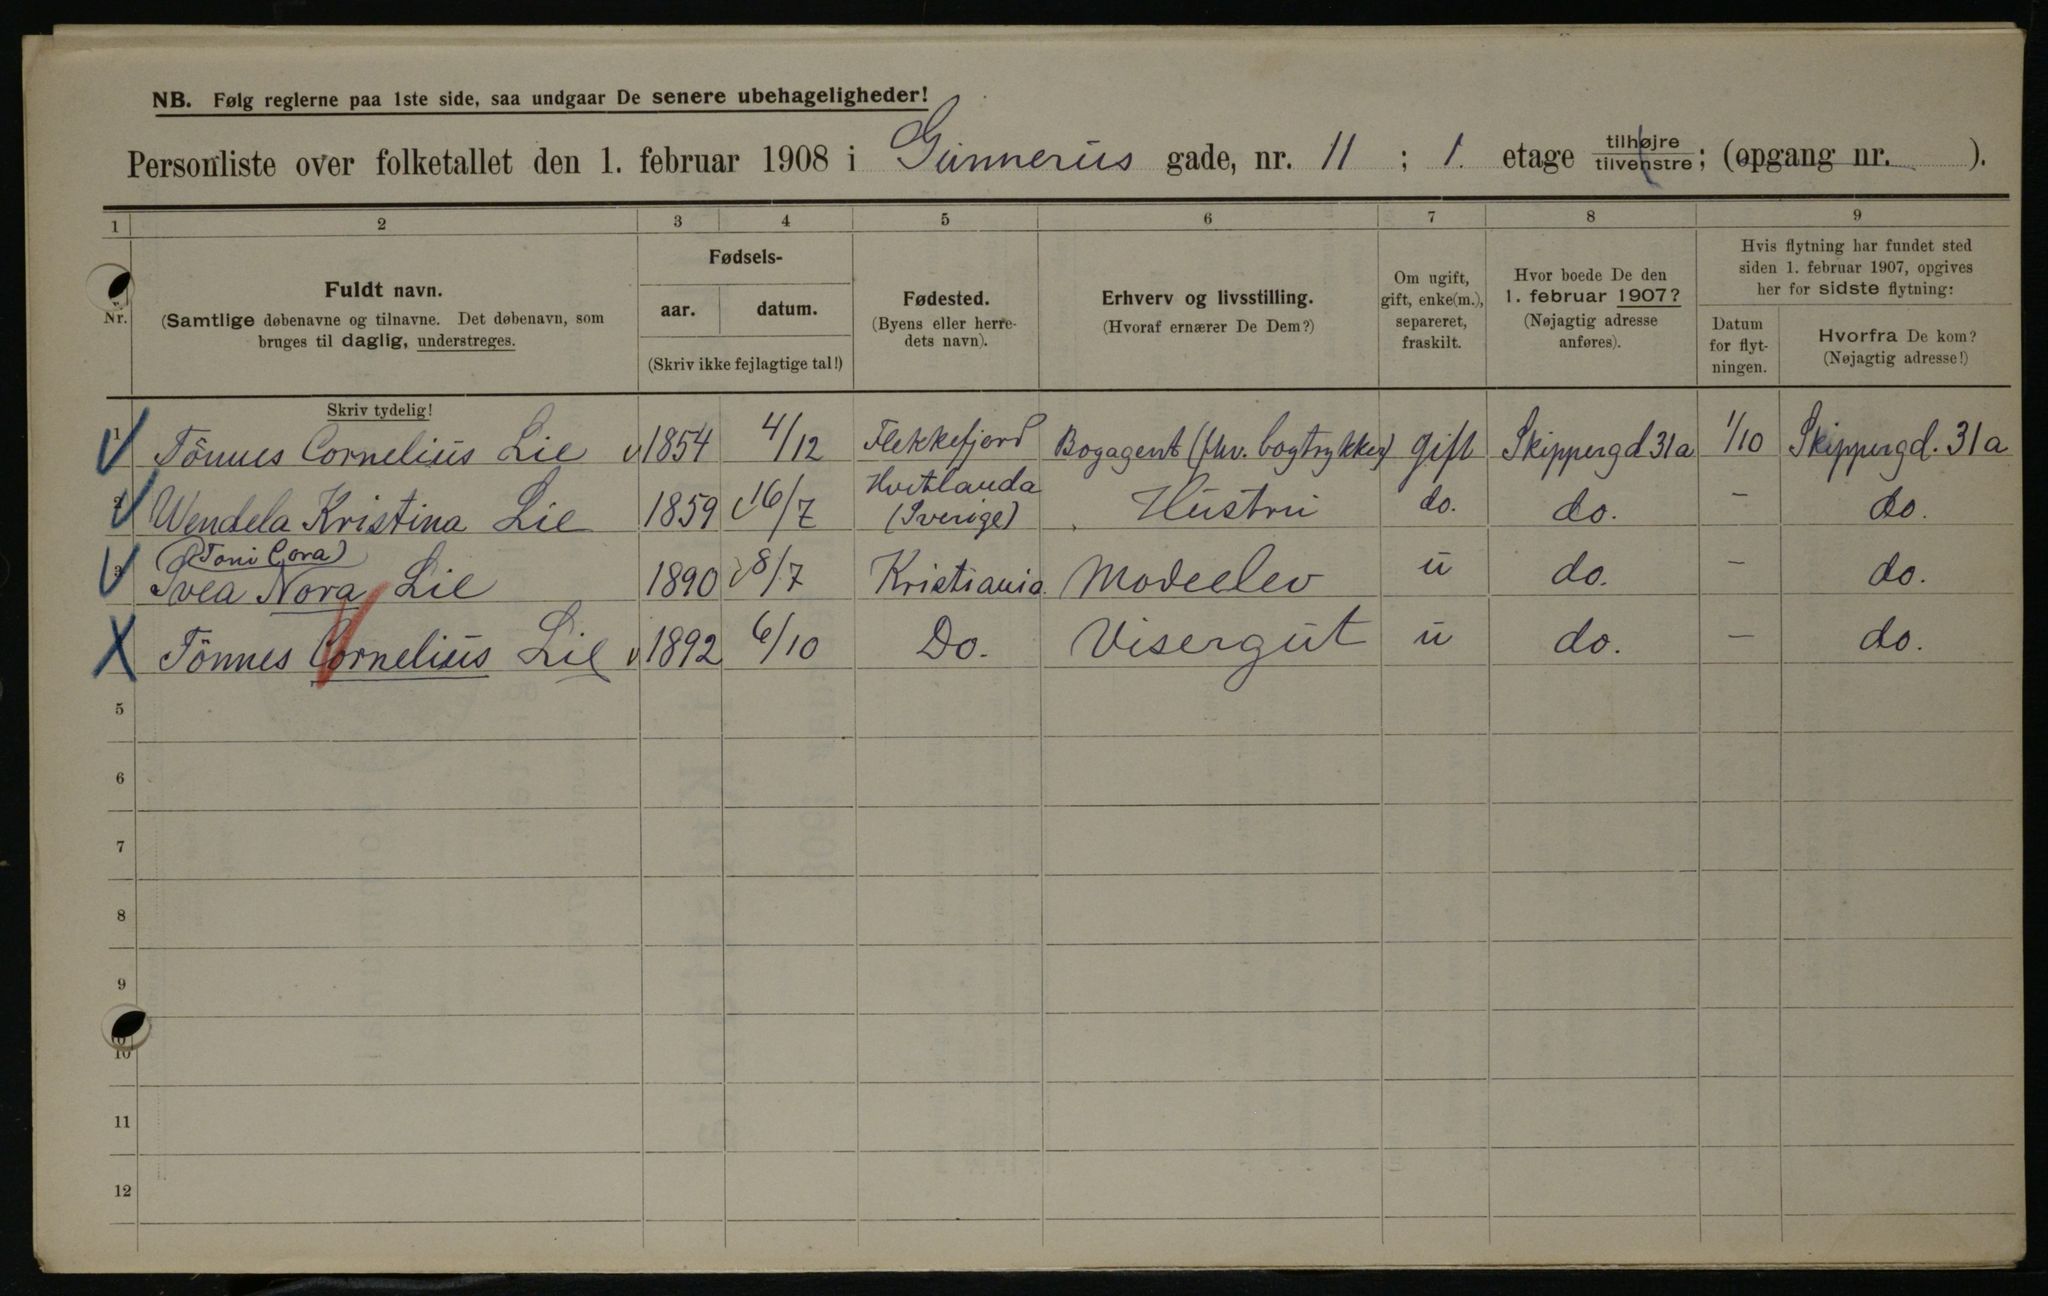 NB. Følg reglerne paa 1ste side, saa undgaar De senere ubehageligheder!
Personliste over folketallet den 1. februar 1908 i Gunnerus gade, nr. 11 ; 1. etage tilhøjre tilvenstre ; (opgang nr. ).
1 2 3 4 5 6 7 8 9
Nr.
Fuldt navn.
(Samtlige døbenavne og tilnavne. Det døbenavn, som
bruges til daglig, understreges.
Skriv tydelig!
Fødsels-
aar. datum.
(Skriv ikke fejlagtige tal!)
Fødested.
(Byens eller herre-
dets navn).
Erhverv og livsstilling.
(Hvoraf ernærer De Dem?)
Om ugift,
gift, enke(m.),
separeret,
fraskilt.
Hvor boede De den
1. februar 1907?
(Nøjagtig adresse
anføres).
Hvis flytning har fundet sted
siden 1. februar 1907, opgives
her for sidste flytning:
Datum
for flyt-
ningen.
Hvorfra De kom?
(Nøjagtig adresse!)
1 Tönnes Cornelius Lie 1854 4/12 Flekkefjord Bogagent (fhv. bogtrykker) gift Skippergd 31a 1/10 Skippergd. 31a
2 Wendela Kristina Lie 1859 16/7 Hvetlanda (Sverige) Hustru do. do. – do.
(Toni Cora)
3 Svea Nora Lie 1890 8/7 Kristiania Modeelev u do. – do.
Tönnes Cornelius Lie 1892 6/10 Do. Visergut u do. – do.
5
6
7
8
9
10
11
12